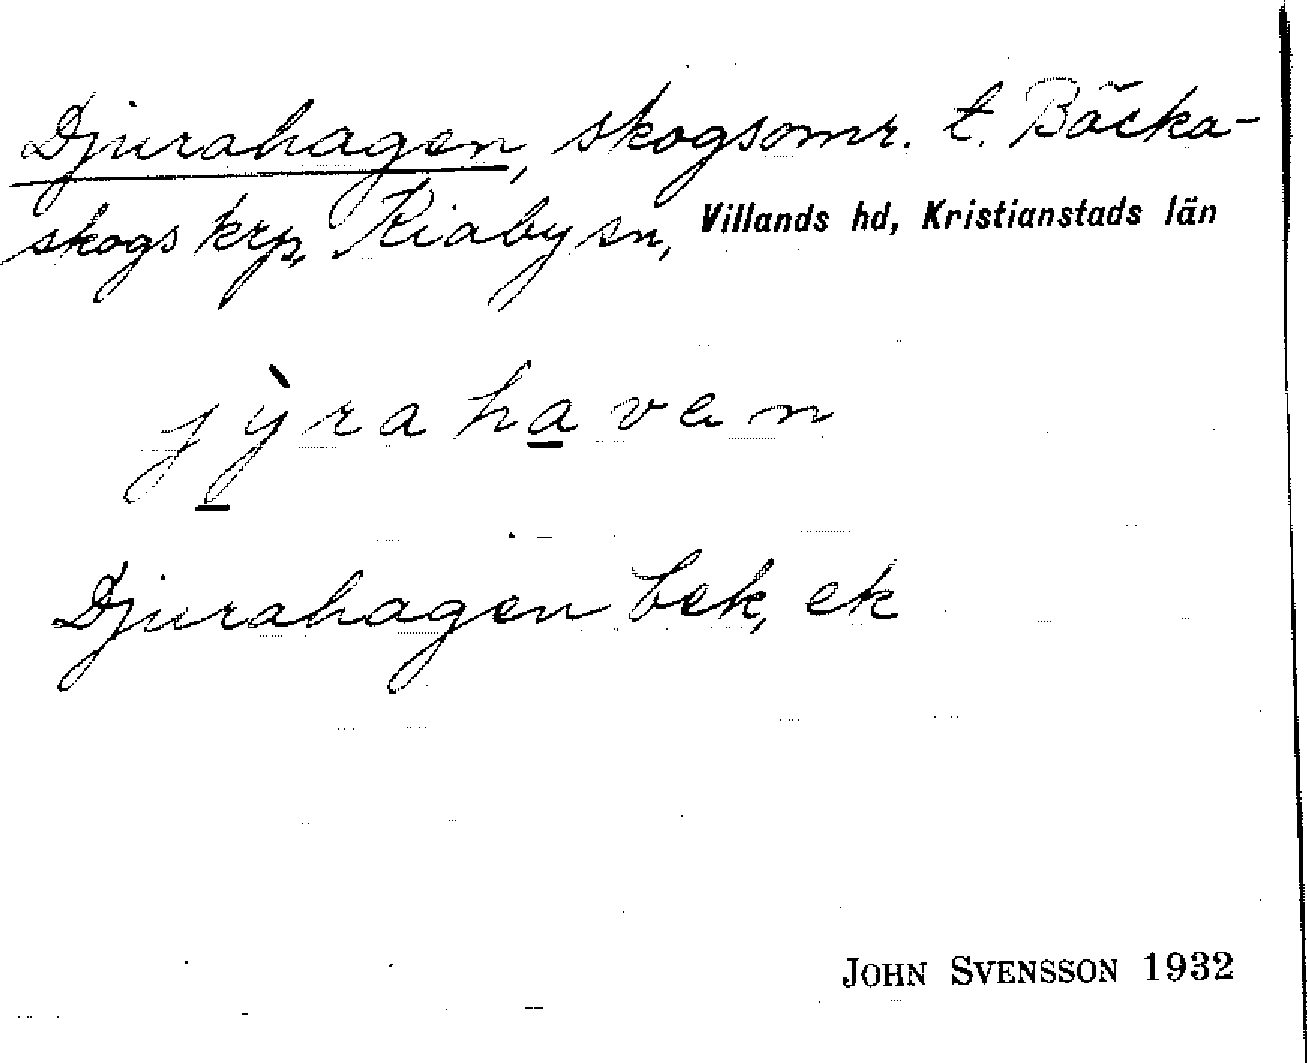 Djurahagen, skogsomr. t. Bäcka-
skogs krp, Kiaby sn, Villands hd, Kristianstads län
jỳrahavan
Djurahagen bek, ek
JOHN SVENSSON 1932